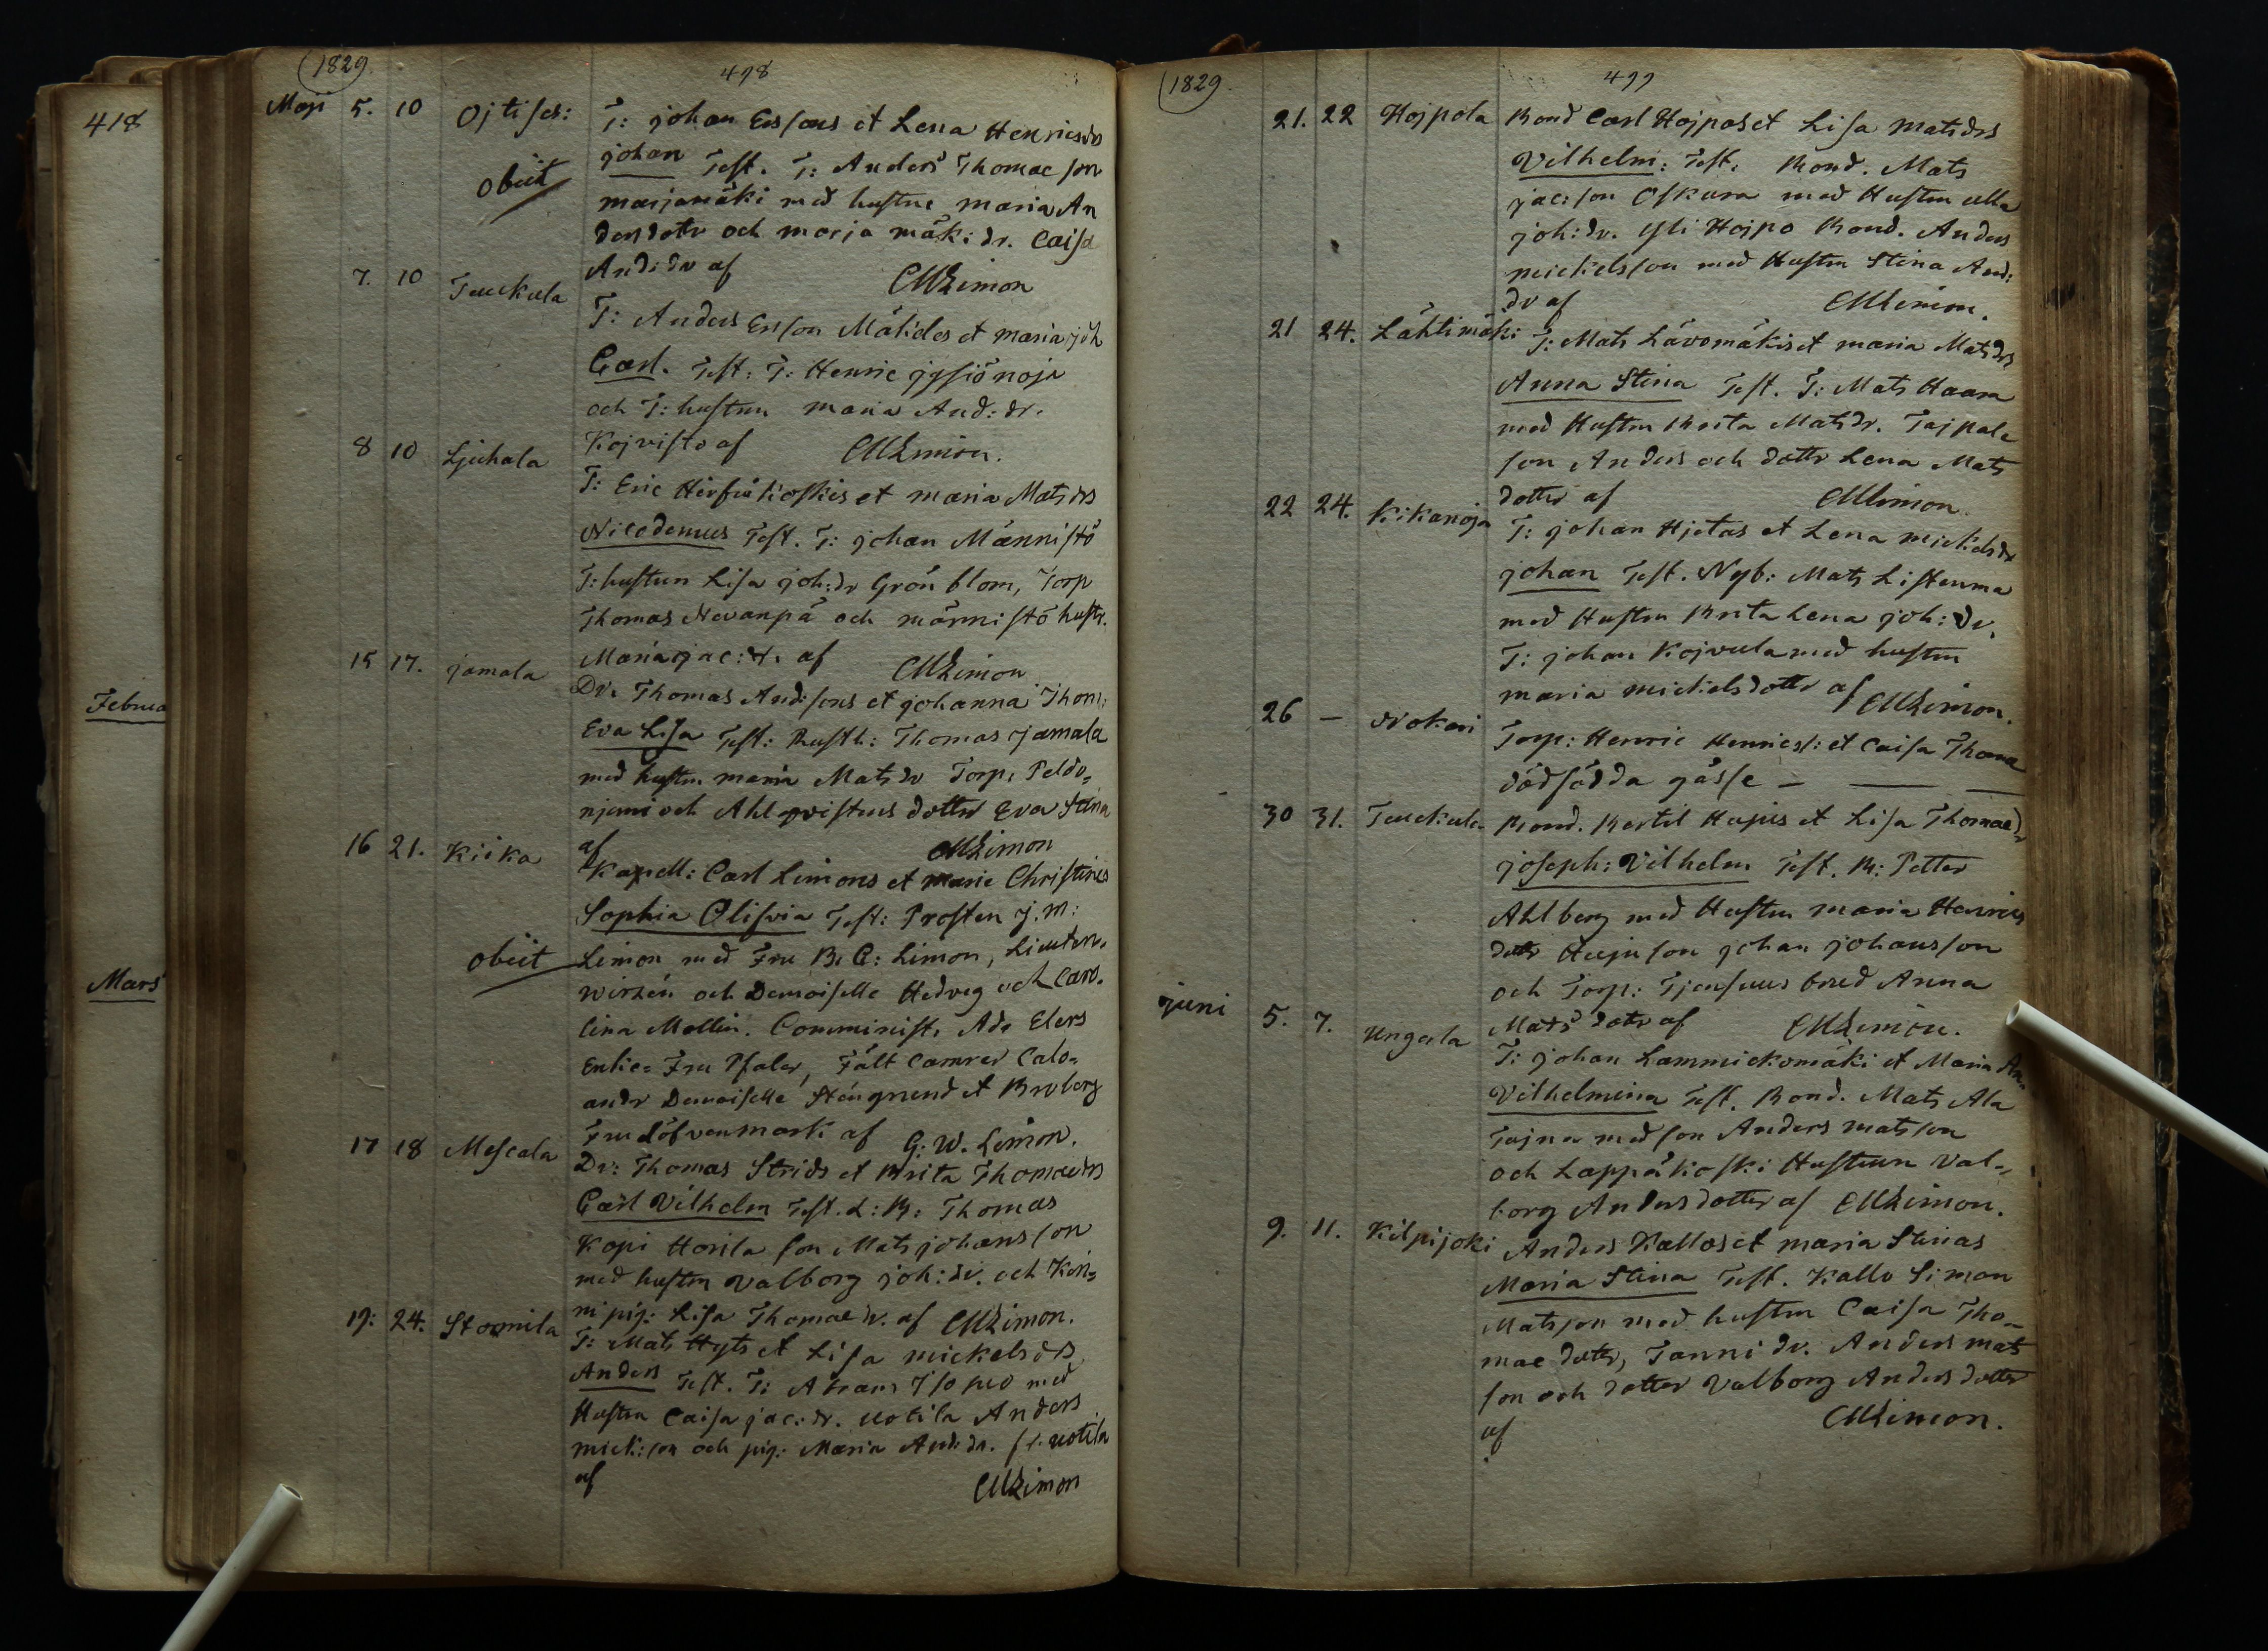 418
Februa
Mars
1829
498
Maji 5. 10 Ojtis es: T: johan Ersons et Lena Henricsdrs
johan Test. T: Anders Thomae son
Obiit marjamäki med hustru maria An
dersdotr och marja mäki dr. Caisa
And: dr af CMLimon
7. 10 Teuckula T: Anders Erson Mälides et maria joh
Carl. Test: T: Henric jysiönoja
och T: hustrun maria And: dr.
Kojvisto af CMLimon.
8 10 Ljuhala T: Eric Hirfvikoskis et maria Mats drs
Nicodemus Test. T: johan Männistö
T: hustrun Lisa joh: dr Grön blom, Torp
Thomas Nevanpä och männistö hustr.
Maria jac: dr. af CMLimon
15 17. jamala Dr. Thomas And: sons et johanna Thom:
Eva Lisa Test: Rusth: Thomas jamala
med hustrn maria Mats dr Torp. Peldo=
njemi och Ahlqvistens dotter Eva Stina
af CMLimon
16 21. Kiika Kapell: Carl Limons et marie Christines
Sophia Olivia Test: Prosten J. M:
obiit Limon med Fru B. C: Limon, Lieuten.
Wirzén och Demoiselle Hedvig och Caro.
lina Mellin. Comminist. Ad. Elers
Enke= Fru Pfaler, Fält Camrer Calo=
andr Demoiselle Stengrund et Broberg
Fru Löfvenmark af G: W. Limon.
17 18 Mescala Dr: Thomas Strids et Brita Thomaedrs
Carl Vilhelm Test. L: B: Thomas
Kopi Horila son Mats johans son
med hustrn Valborg joh: dr. och Kin=
ni pig: Lisa Thomae dr. af CMLimon.
19: 24. Stormila T: Mats Hyts et Lisa mickels drs
Anders Test. T: Abram Isopeo med
Hustrn Caisa jac: dr. Uotila Anders
mick: son och pig: Maria And: dr. fr. Uotila
af CMLimon
1829
499
21. 22 Hojpola Bond Carl Hojpos et Lisa mats drs
Vilhelm: Test. Bond. Mats
jac: son Oskura med Hustrn ulla
joh: dr. Yli Hojpo Bond. Anders
mickelsson med Hustrn Stina And:
dr af CMLimon.
21 24. Lähtimäki T: Mats Lävomäkis et maria Mats drs
Anna Stina Test. T: Mats Haara
med Hustrn Brita Mats dr. Tajpale
son Anders och dottr Lena Mats
dotter af CMLimon
22 24. Kikanoja T: johan Hjetas et Lena mickels dr
johan Test. Nyb: Mats Listenma
med Hustrn Brita Lena joh: dr,
T: johan Kojvula med hustrn
maria mickelsdotter af CMLimon.
26 — Nokari Torp: Henric Henrics: et Caisa Thoma
dödfödda gåsse —
30 31. Teuckula Bond. Bertil Hujus et Lisa Thomaedr
joseph: Vilhelm Test. B: Petter
Ahlberg med Hustrn maria Henrics
dotr Huju son johan johansson
och Torp: Tjensuus brud Anna
Mats dotr af CMLimon.
juni 5. 7. Ungala T: johan Lammickomäki et Maria An
Vilhelmina Test. Bond. Mats Ala
Tojna med son Anders matson
och Lappäkoski Hustrun Val=
borg Andersdotter af CMLimon.
9. 11. Kilpijoki Anders Kallos et maria Stinas
Maria Stina Test. Kallo Simon
Matsson med hustrn Caisa Tho=
mae dotter, Tanni dr. Anders mats
son och dotter Valborg Anders dotter
af CMLimon.